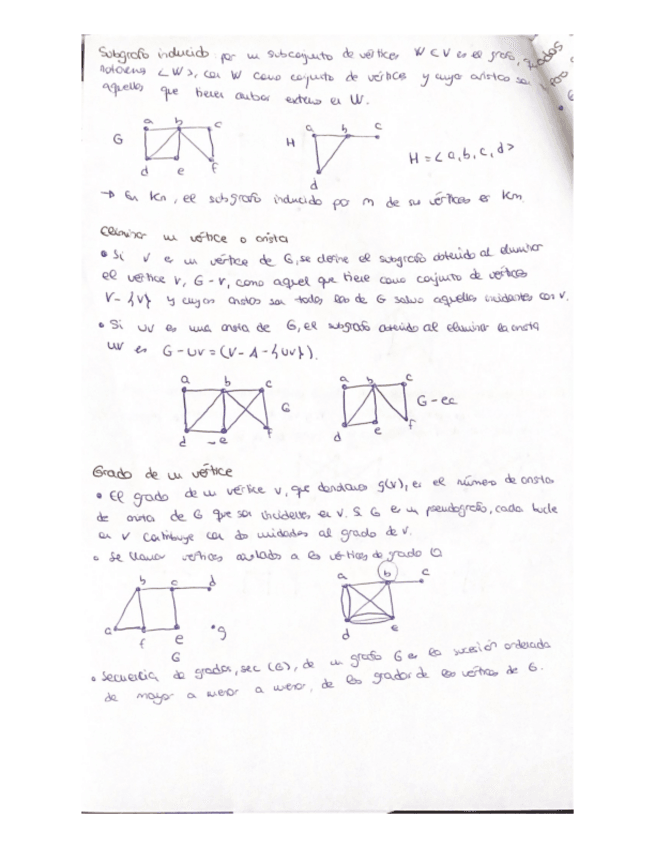 Subgrafo inducido por un subconjunto de vértices W ⊂ V es el grafo,
notaremos <W>, con W como conjunto de vértices y cuyas aristas son
aquellas que tienen ambos extremos en W.
G a b c d e f
H a b c d
H = <a, b, c, d>
→ En Kn, el subgrafo inducido por m de sus vértices es Km.
Eliminar un vértice o arista
• Si v es un vértice de G, se define el subgrafo obtenido al eliminar
el vértice v, G - v, como aquel que tiene como conjunto de vértices
V - {v} y cuyas aristas son todas las de G salvo aquellas incidentes con v.
• Si uv es una arista de G, el subgrafo obtenido al eliminar la arista
uv es G - uv = (V - A - {uv}).
a b c G d e f
a b c G - ec d e f
Grado de un vértice
• El grado de un vértice v, que denotamos g(v), es el número de aristas
de G que son incidentes en v. Si G es un pseudografo, cada bucle
en v contribuye con dos unidades al grado de v.
• Se llaman vértices aislados a los vértices de grado 0
b c d a f e g G
a b c d e
• Secuencia de grados, sec (G), de un grafo G es la sucesión ordenada
de mayor a menor a menor, de los grados de los vértices de G.